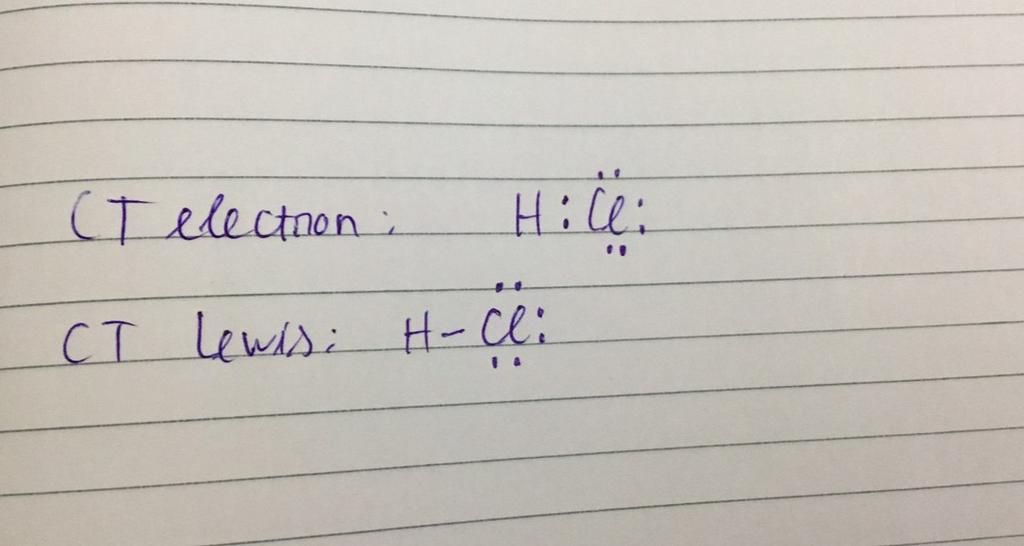 CT electron: H : C̤̈l :
CT Lewis: H – C̤̈l :